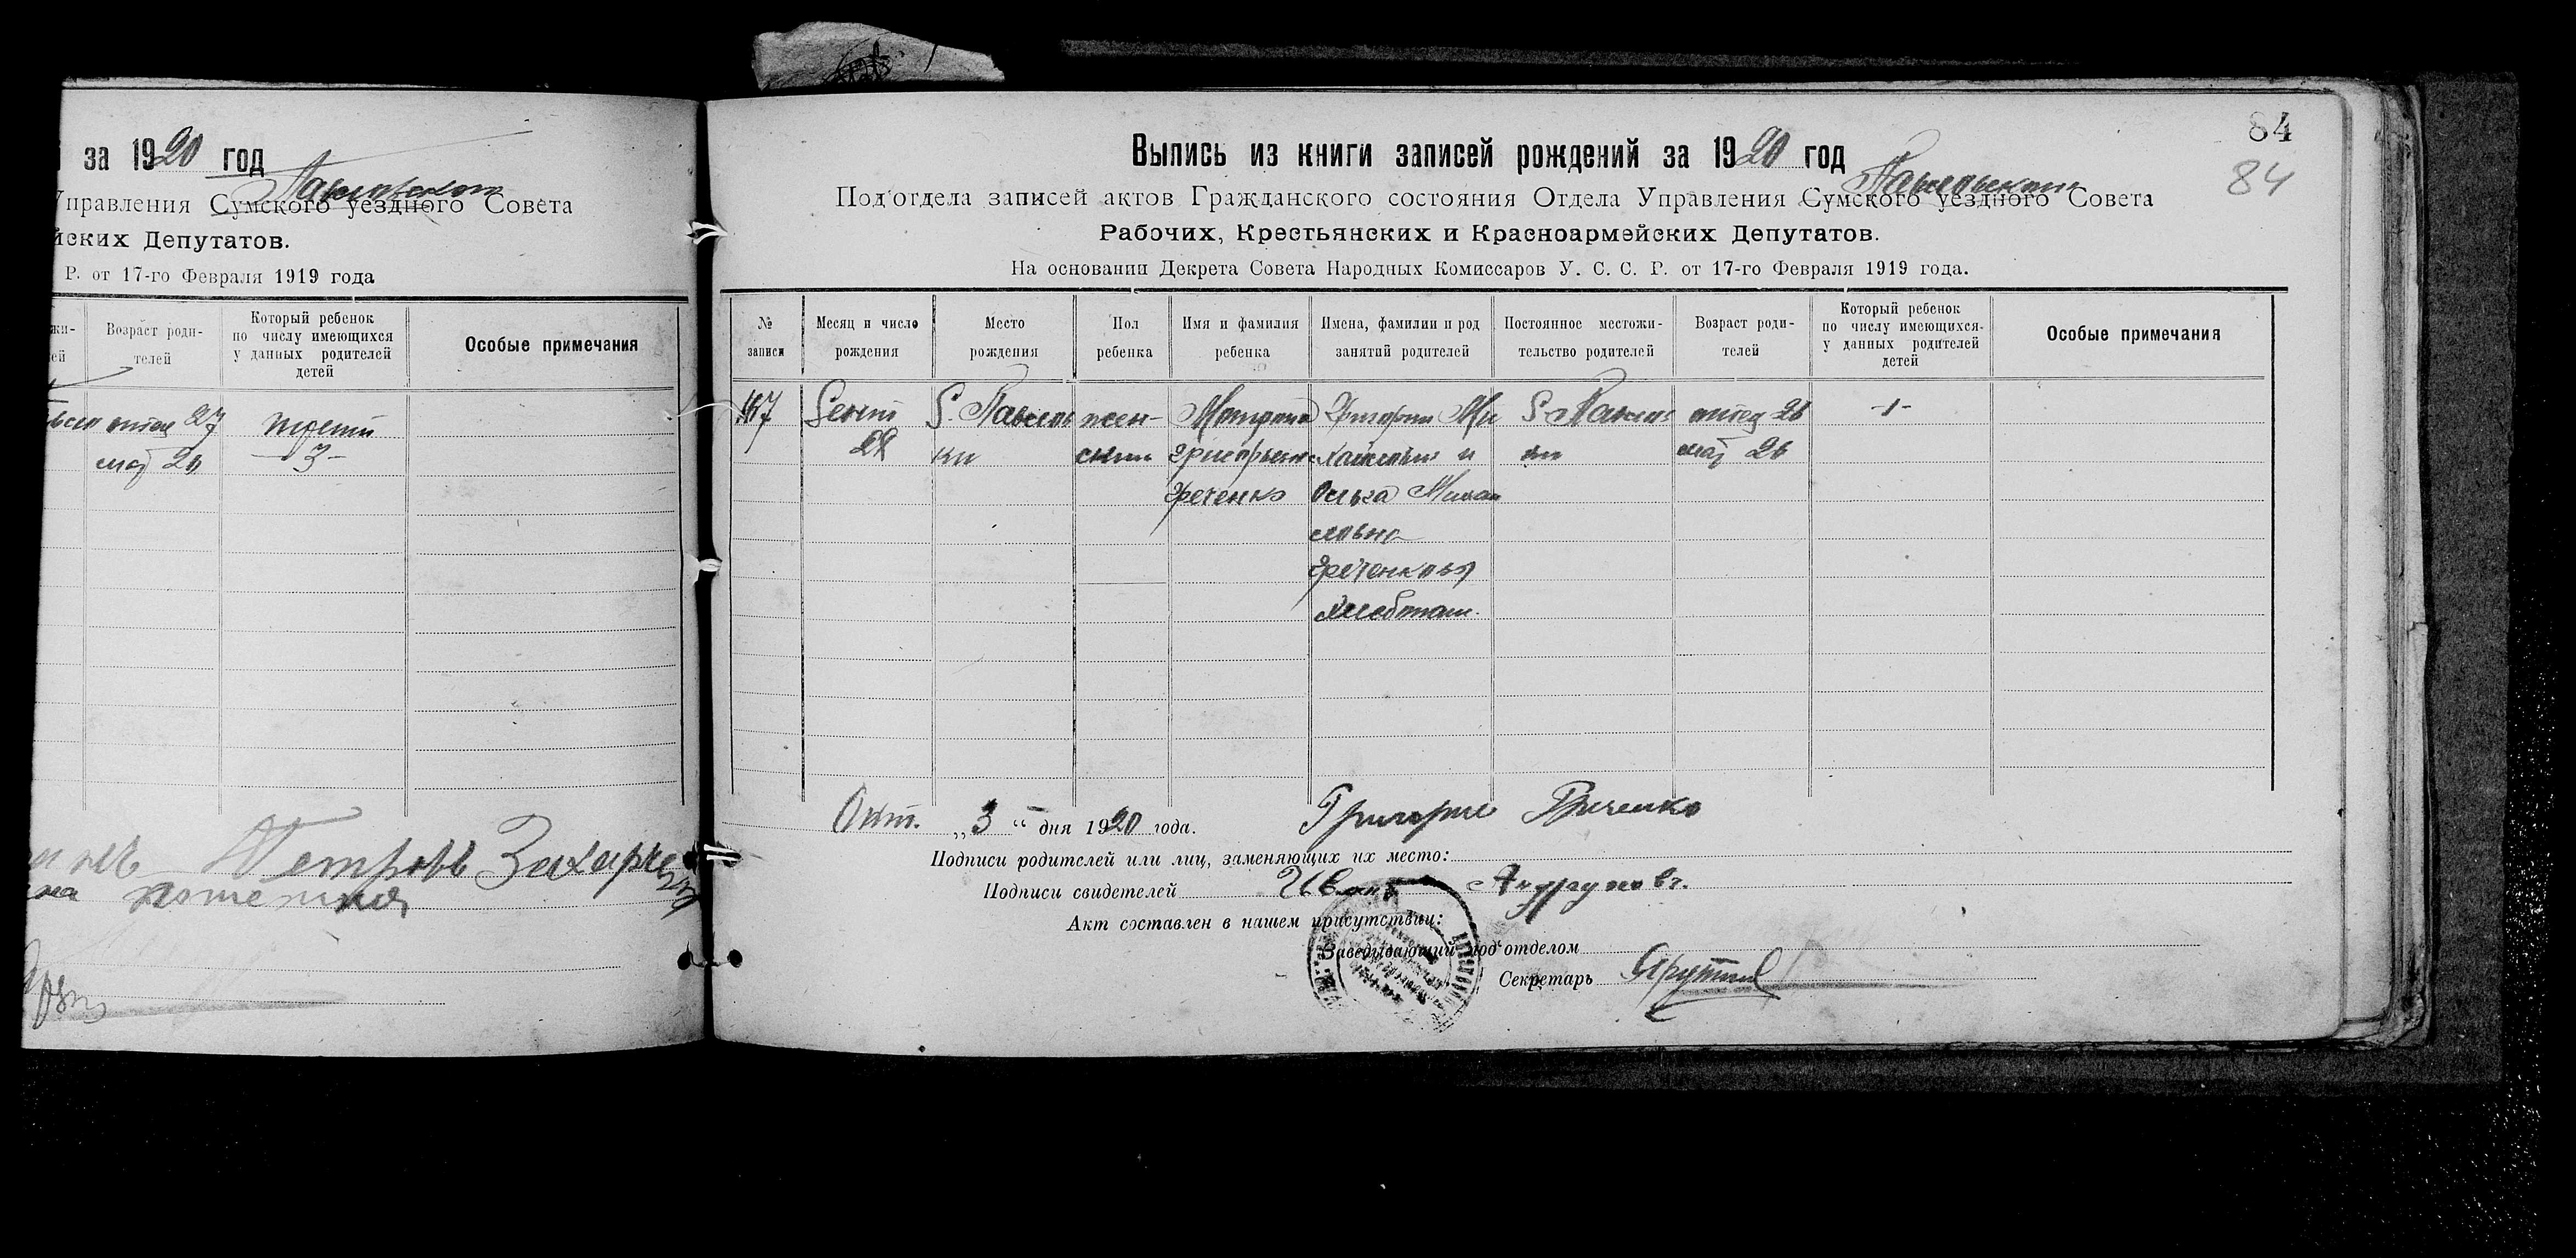 за 1920 год
Павловского
Управления Сумского уездного Совета
йских Депутатов.
Р. от 17-го Февраля 1919 года
жи-
ей
Возраст роди-
телей
Который ребенок
по числу имеющихся
у данных родителей
детей
Особые примечания
отец 27
третий
мать
—3—
Петровъ Захарченко
84
84
Выпись из книги записей рождений за 1920 год
Павловского
Под'отдела записей актов Гражданского состояния Отдела Управления Сумского уездного Совета
Рабочих, Крестьянских и Красноармейских Депутатов.
На основании Декрета Совета Народных Комиссаров У. С. С. Р. от 17-го Февраля 1919 года.
№
записи
Месяц и число
рождения
Место
рождения
Пол
ребенка
Имя и фамилия
ребенка
Имена, фамилии и род
занятий родителей
Постоянное местожи-
тельство родителей
Возраст роди-
телей
Который ребенок
по числу имеющихся
у данных родителей
детей
Особые примечания
Сент
С. Павлов
ки
жен-
ский
Мотрона
Григорьевна
Греченко
Григорий Ми
хайлович и
Ольга Михаи
ловна
Греченковы
Хлебопаш.
С. Павлов
ки
отец 26
мать 26
-1-
Окт. „3“ дня 1920 года.
Григорие Гриченко
Подписи родителей или лиц, заменяющих их место:
Подписи свидетелей Иванъ
Акт составлен в нашем присутствии:
Заведывающий под'отделом
Секретарь